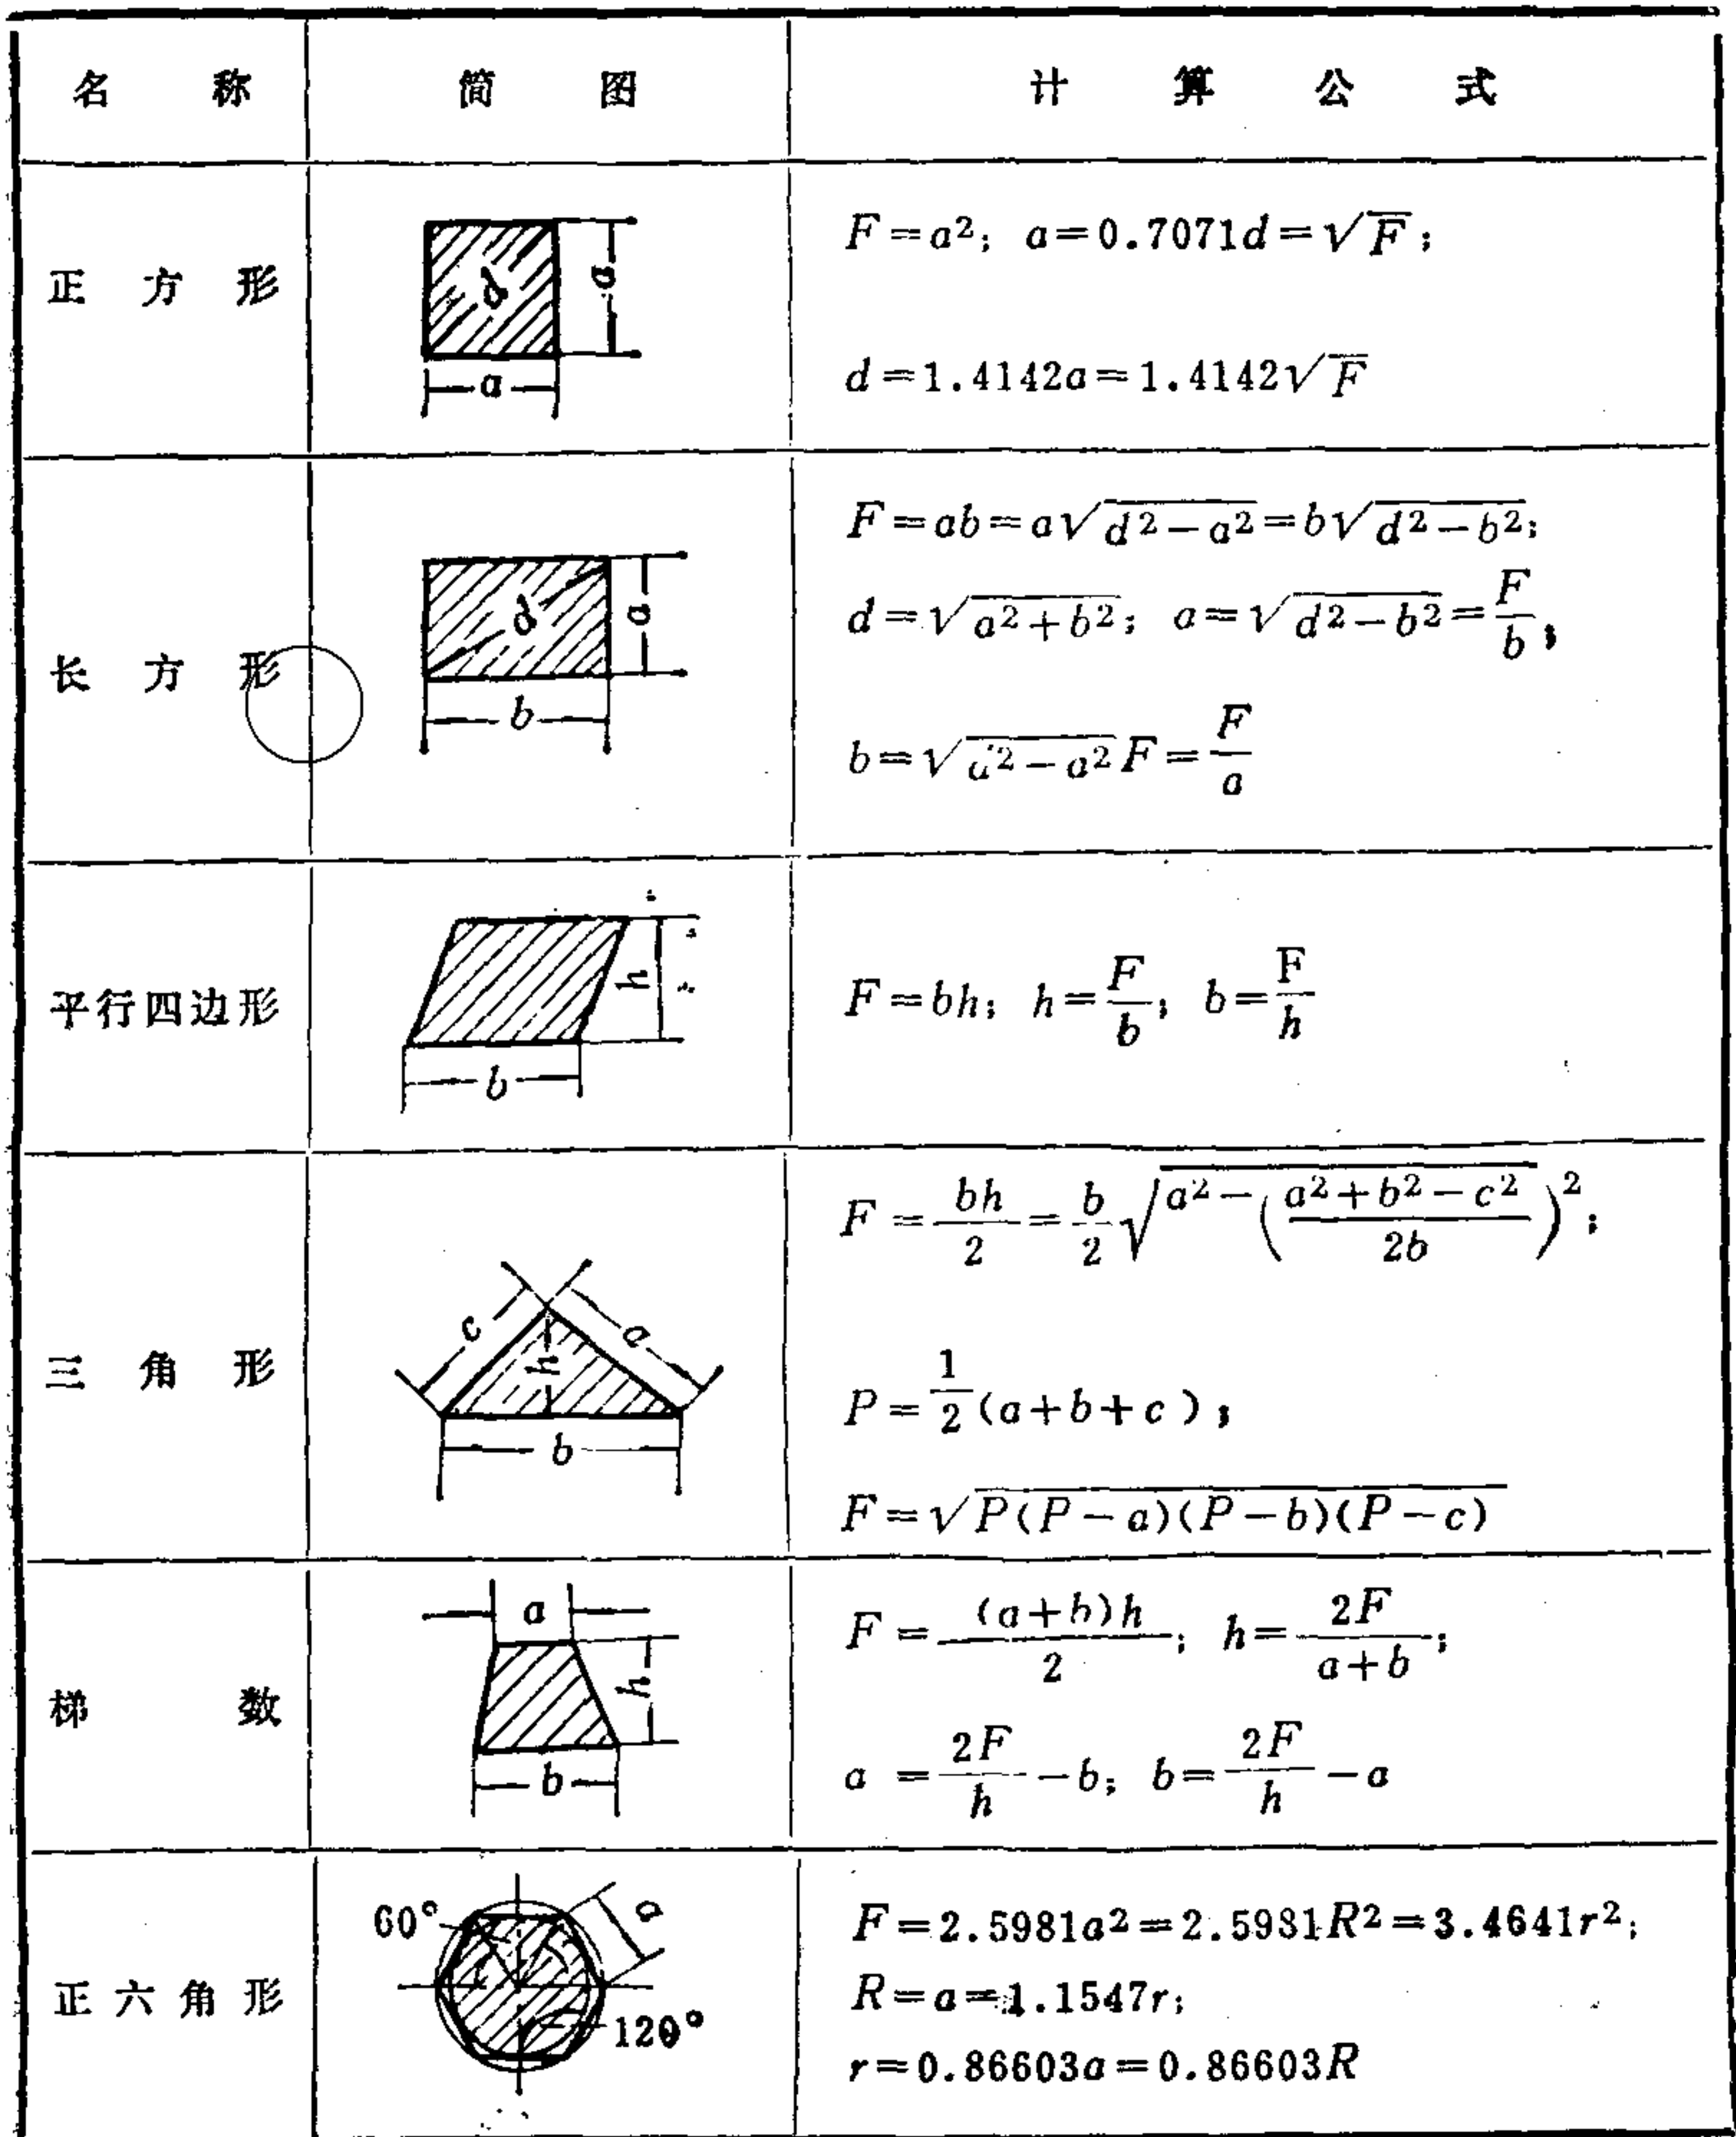 名 称 简 图 计 算 公 式
正 方 形
d
a
a
F=a²; a=0.7071d=√F;
d=1.4142a=1.4142√F
长 方 形
d
a
b
F=ab=a√(d²-a²)=b√(d²-b²);
d=√(a²+b²); a=√(d²-b²)=F/b;
b=√(d²-a²) F=F/a
平行四边形
h
b
F=bh; h=F/b; b=F/h
三 角 形
c
a
h
b
F=bh/2=b/2√(a²-((a²+b²-c²)/2b)²);
P=1/2(a+b+c);
F=√(P(P-a)(P-b)(P-c))
梯 数
a
h
b
F=(a+b)h/2; h=2F/(a+b);
a=2F/h-b; b=2F/h-a
正六角形
60°
a
120°
F=2.5981a²=2.5981R²=3.4641r²;
R=a=1.1547r;
r=0.86603a=0.86603R